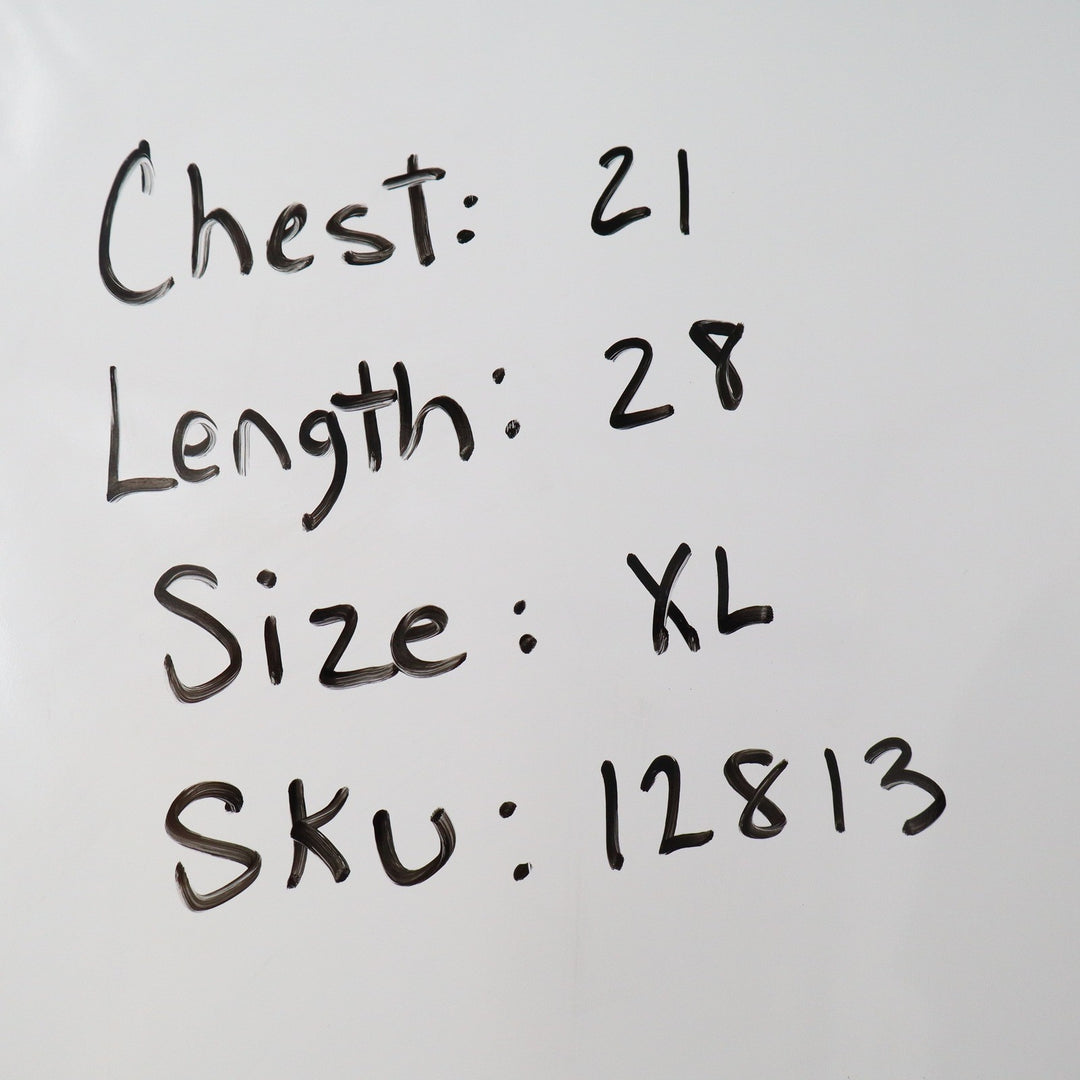 Chest: 21
Length: 28
Size: XL
SKU: 12813